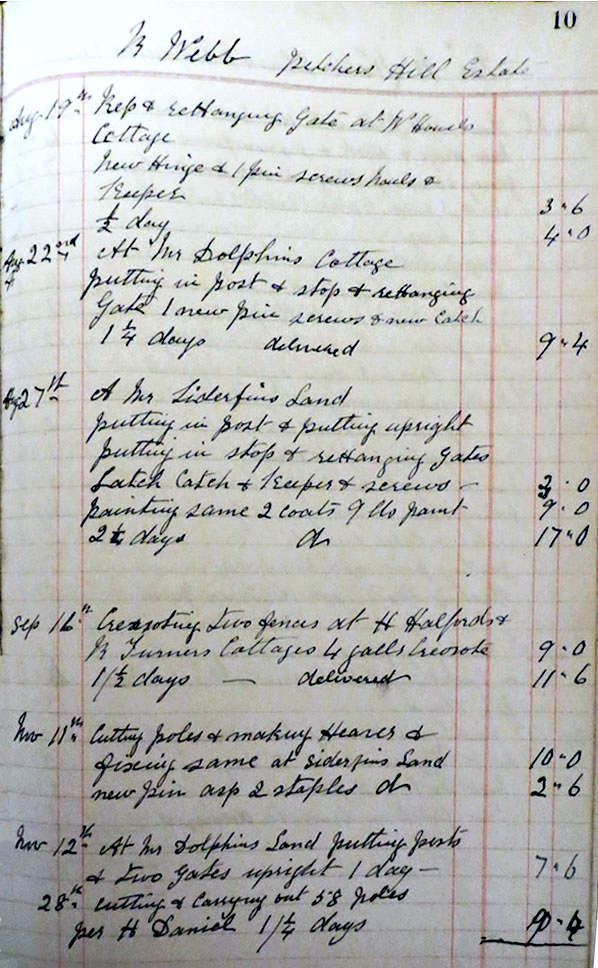 10
R Webb Pitchers Hill Estate
Aug 19th Rep & reHanging Gate at W Howels
Cottage
New Hinge & 1 pin screws nails &
Keeper 3"6
½ day 4"0
Aug 22nd At Mr Dolphins Cottage
putting in post & stop & reHanging
Gate 1 new pin screws & new Catch
1¼ days delivered 9"4
27th At Mr Siderfins Land
putting in post & putting upright
putting in stop & reHanging Gates
Latch Catch & Keeper & screws – 3"0
painting same 2 coats 9 lb paint 9"0
2¼ days d 17"0
Sep 16th Creosoting two fences at H Halfords &
R Turners Cottages 4 galls Creosote 9"0
1½ days — delivered 11"6
Nov 11th Cutting poles & making Heaver &
fixing same at Siderfins Land 10"0
new pin asp 2 staples d 2"6
Nov 12th At Mr Dolphins Land putting posts
& two Gates upright 1 day – 7"6
28th Cutting & Carrying out 58 poles
per H Daniel 1¼ days 9"4